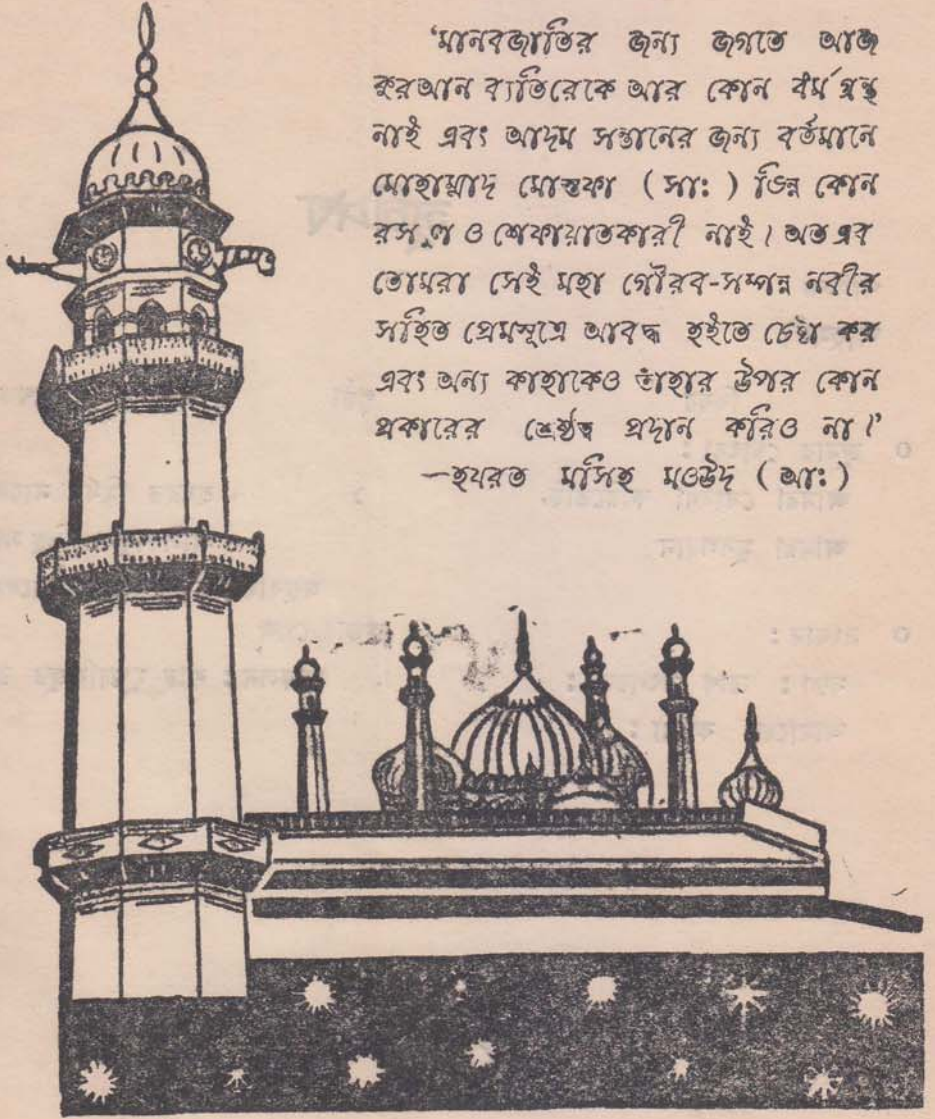 ‘মানবজাতির জন্য জগতে আজ
কুরআন ব্যতিরেকে আর কোন ধর্ম গ্রন্থ
নাই এবং আদম সন্তানের জন্য বর্তমানে
মোহাম্মাদ মোস্তফা ( সাঃ ) ভিন্ন কোন
রসূল ও শেফায়াতকারী নাই। অতএব
তোমরা সেই মহা গৌরব-সম্পন্ন নবীর
সহিত প্রেমসূত্রে আবদ্ধ হইতে চেষ্টা কর
এবং অন্য কাহাকেও তাঁহার উপর কোন
প্রকারের শ্রেষ্ঠত্ব প্রদান করিও না।’
—হযরত মসিহ মওউদ ( আঃ )